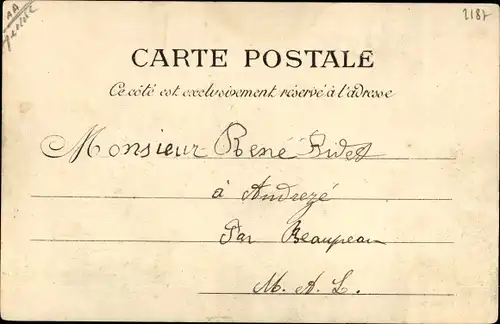 2187
CARTE POSTALE
Ce côté est exclusivement réservé à l'adresse
Monsieur René
à Andrezé
Par Beaupreau
M. A. L.